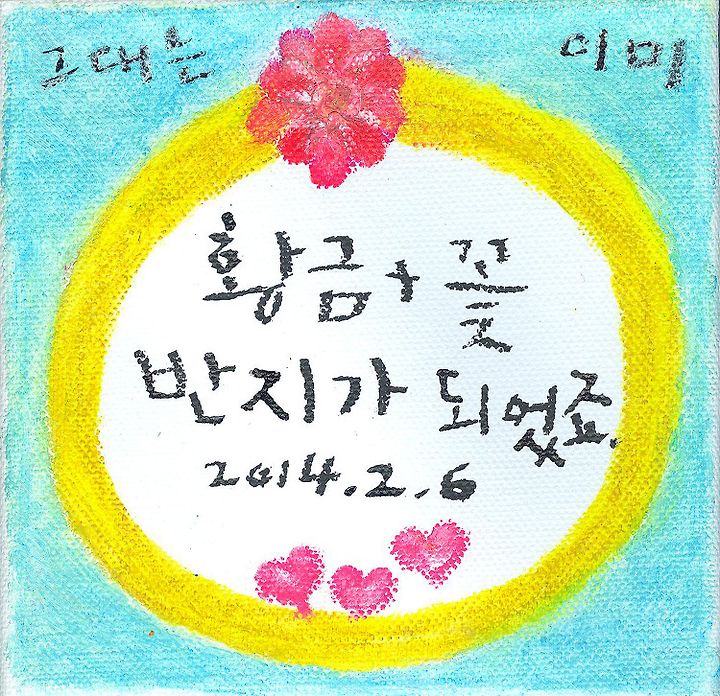 그대는 이미
황금+꽃
반지가 되었죠.
2014.2.6